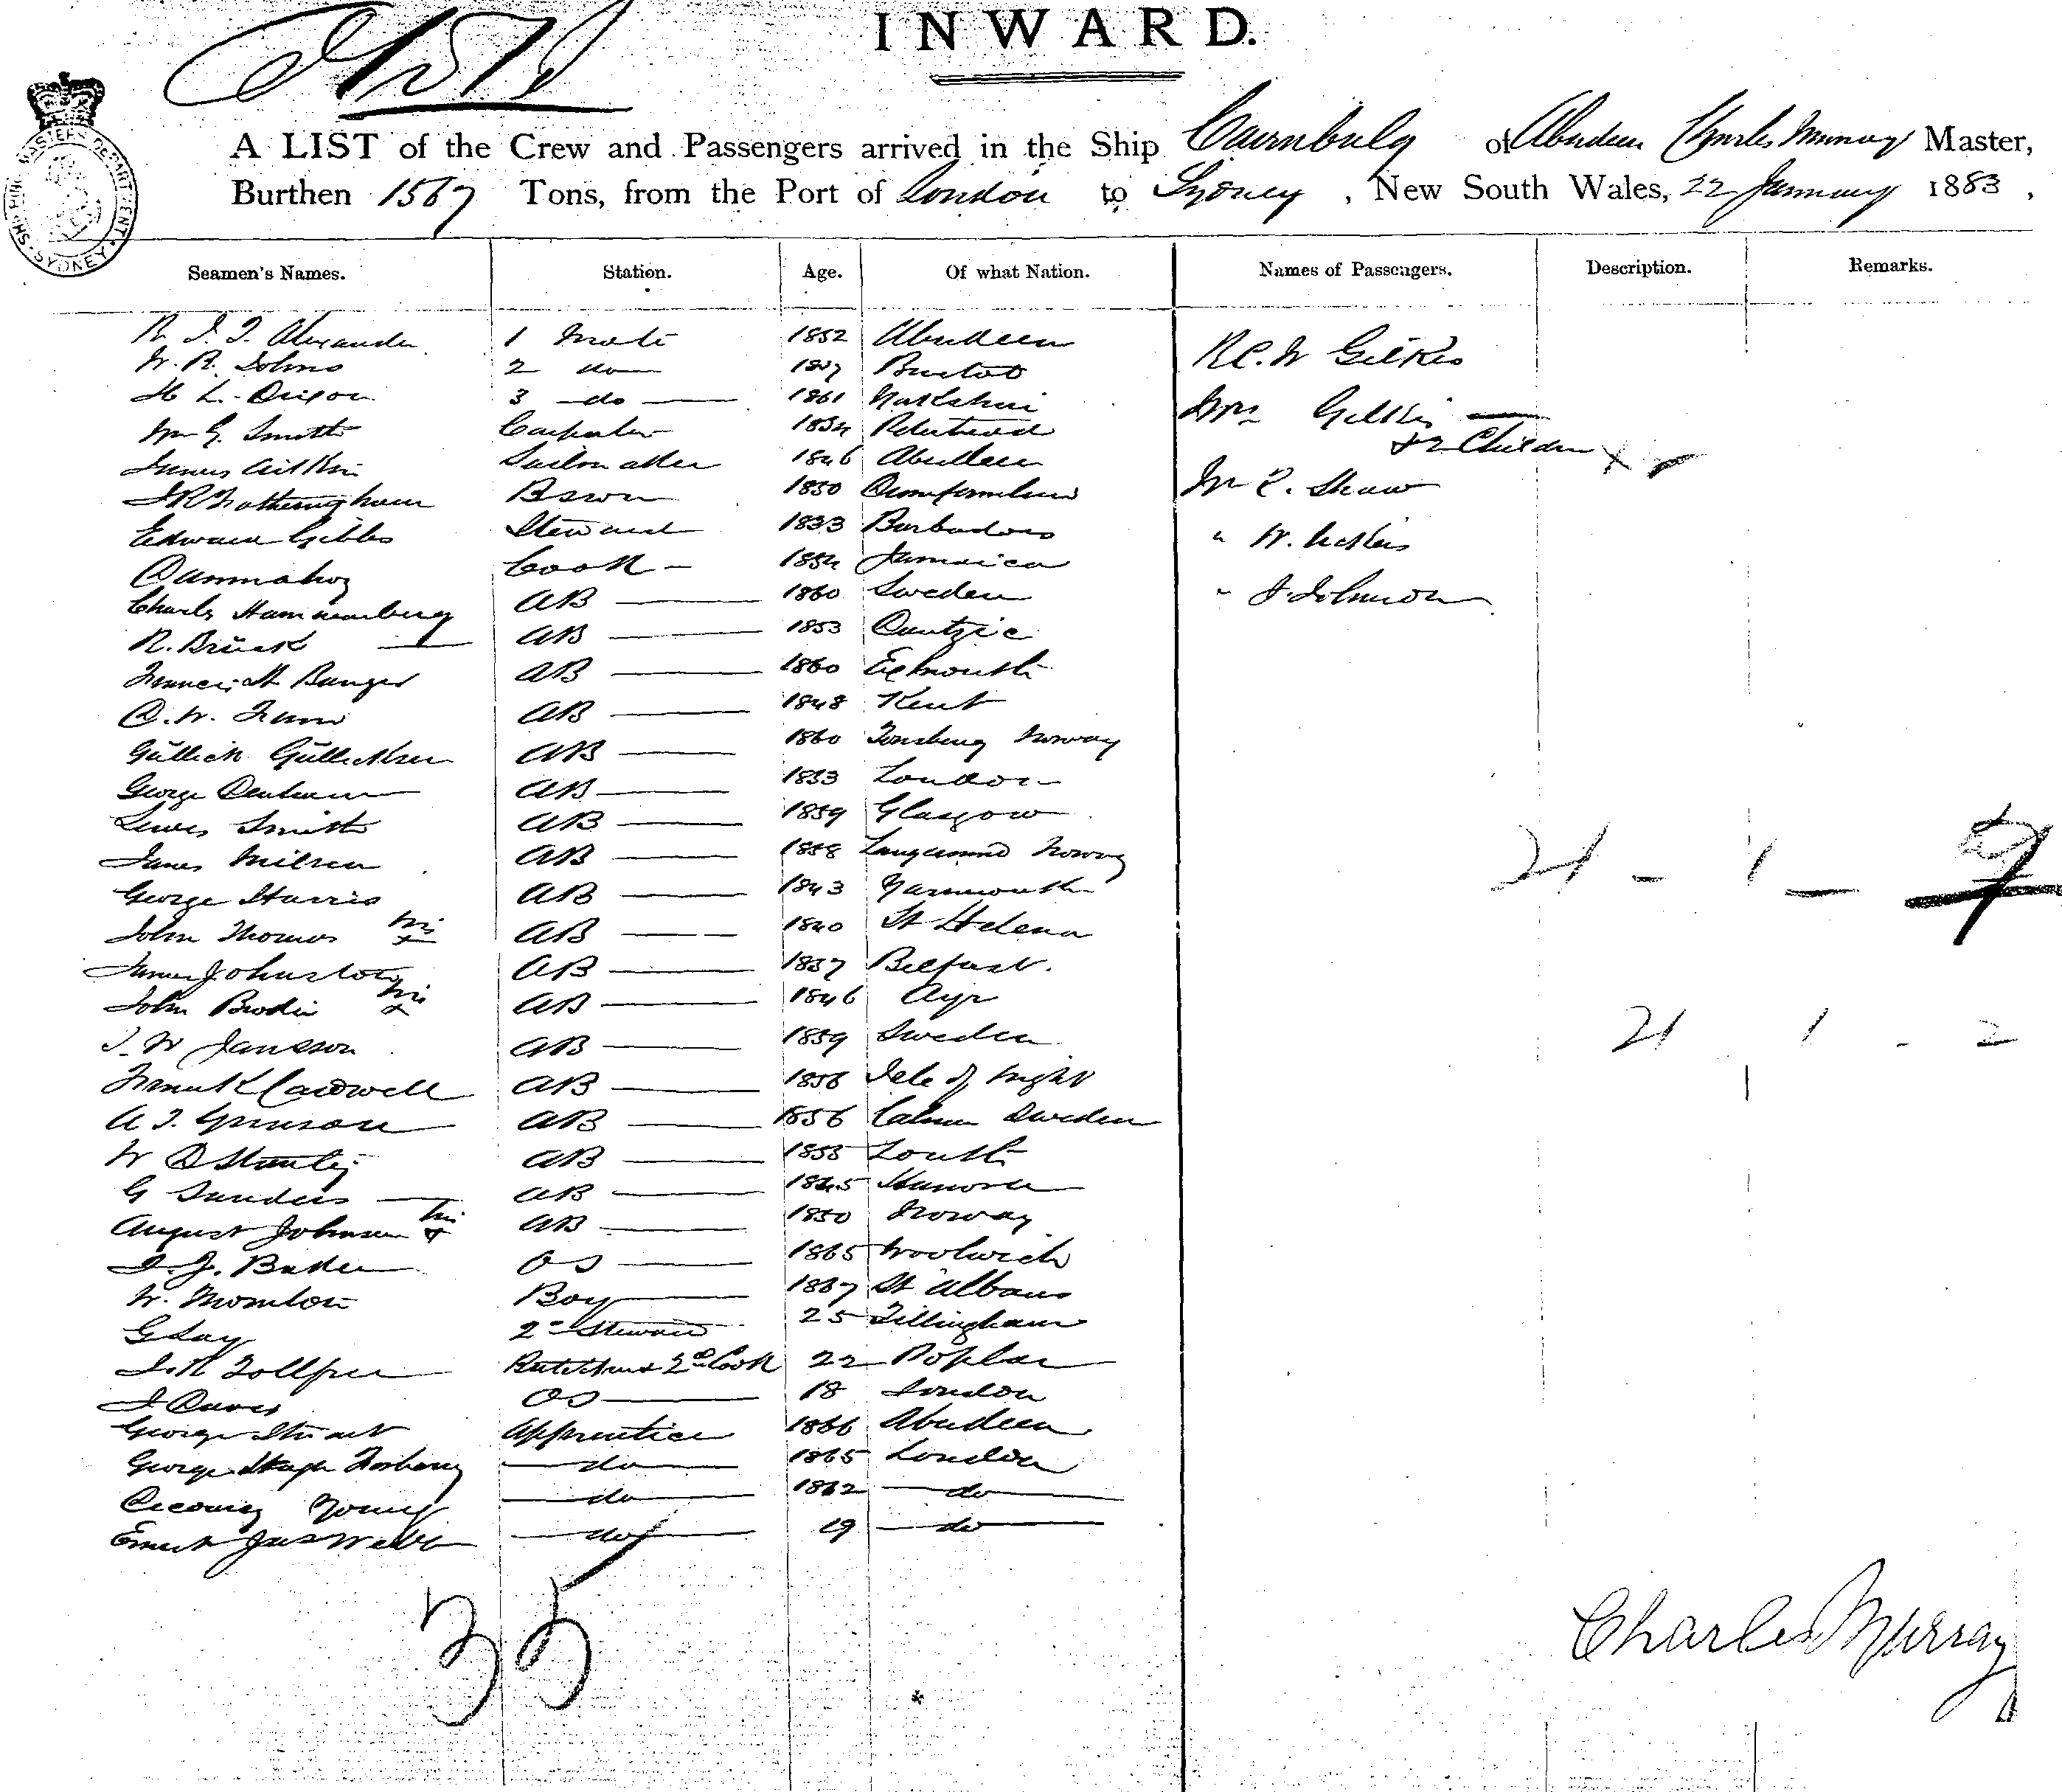 INWARD.
A LIST of the Crew and Passengers arrived in the Ship Cairnbulg of Aberdeen Charles Murray Master,
Burthen 1567 Tons, from the Port of London to Sydney, New South Wales, 22 January 1883,
SHIPPING MASTER'S DEPARTMENT SYDNEY
Seamen's Names. Station. Age. Of what Nation. Names of Passengers. Description. Remarks.
Alexander 1 Mate 1852 Aberdeen
W. R. Johns 2 do
H L. Dixon 3 do 1861
Wm G. Smith Carpenter 1854 Peterhead
James Aitken Sailmaker 1846 Aberdeen
J R Fotheringham Bswn 1850 Dunfermline
Edward Gibbs Steward 1833 Barbadoes
Cook 1854 Jamaica
Charles Hammarberg AB 1860 Sweden
R. AB 1853 Dantzic
Francis H Banger AB 1860 Exmouth
AB 1848 Kent
Gullick Gullicksen AB 1860 Tonsberg Norway
George Denham AB 1853 London
Smith AB 1859 Glasgow
James AB 1858 Langesund Norway
George Harris AB 1843 Yarmouth
John Thomas x AB 1840 St Helena
James Johnston AB 1837 Belfast.
John Brodie x AB 1846 Ayr
Jansson AB 1859 Sweden
Frank Cardwell AB 1856 Isle of Wight
AB 1856 Calmar Sweden
W D Stanley AB 1858 Louth
G Sanders AB 1845 Hanover
August Johnsen x AB 1850 Norway
J. Baker OS 1865 Woolwich
W. Boy 1867 St Albans
G Say 2nd Steward 25 Tillingham
Tollfree Butcher & 2nd Cook 22 Poplar
J Daves OS 18 London
George Stuart Apprentice 1866 Aberdeen
George do 1865 London
Young do 1862 do
Ernest Jas Webb do 19 do
35
Gilkes
Mrs Gilkes
& 2 Children x
Mr Shaw
" W.
" J. Johnson
21 - 1 -
21 1 - 2
Charles Murray